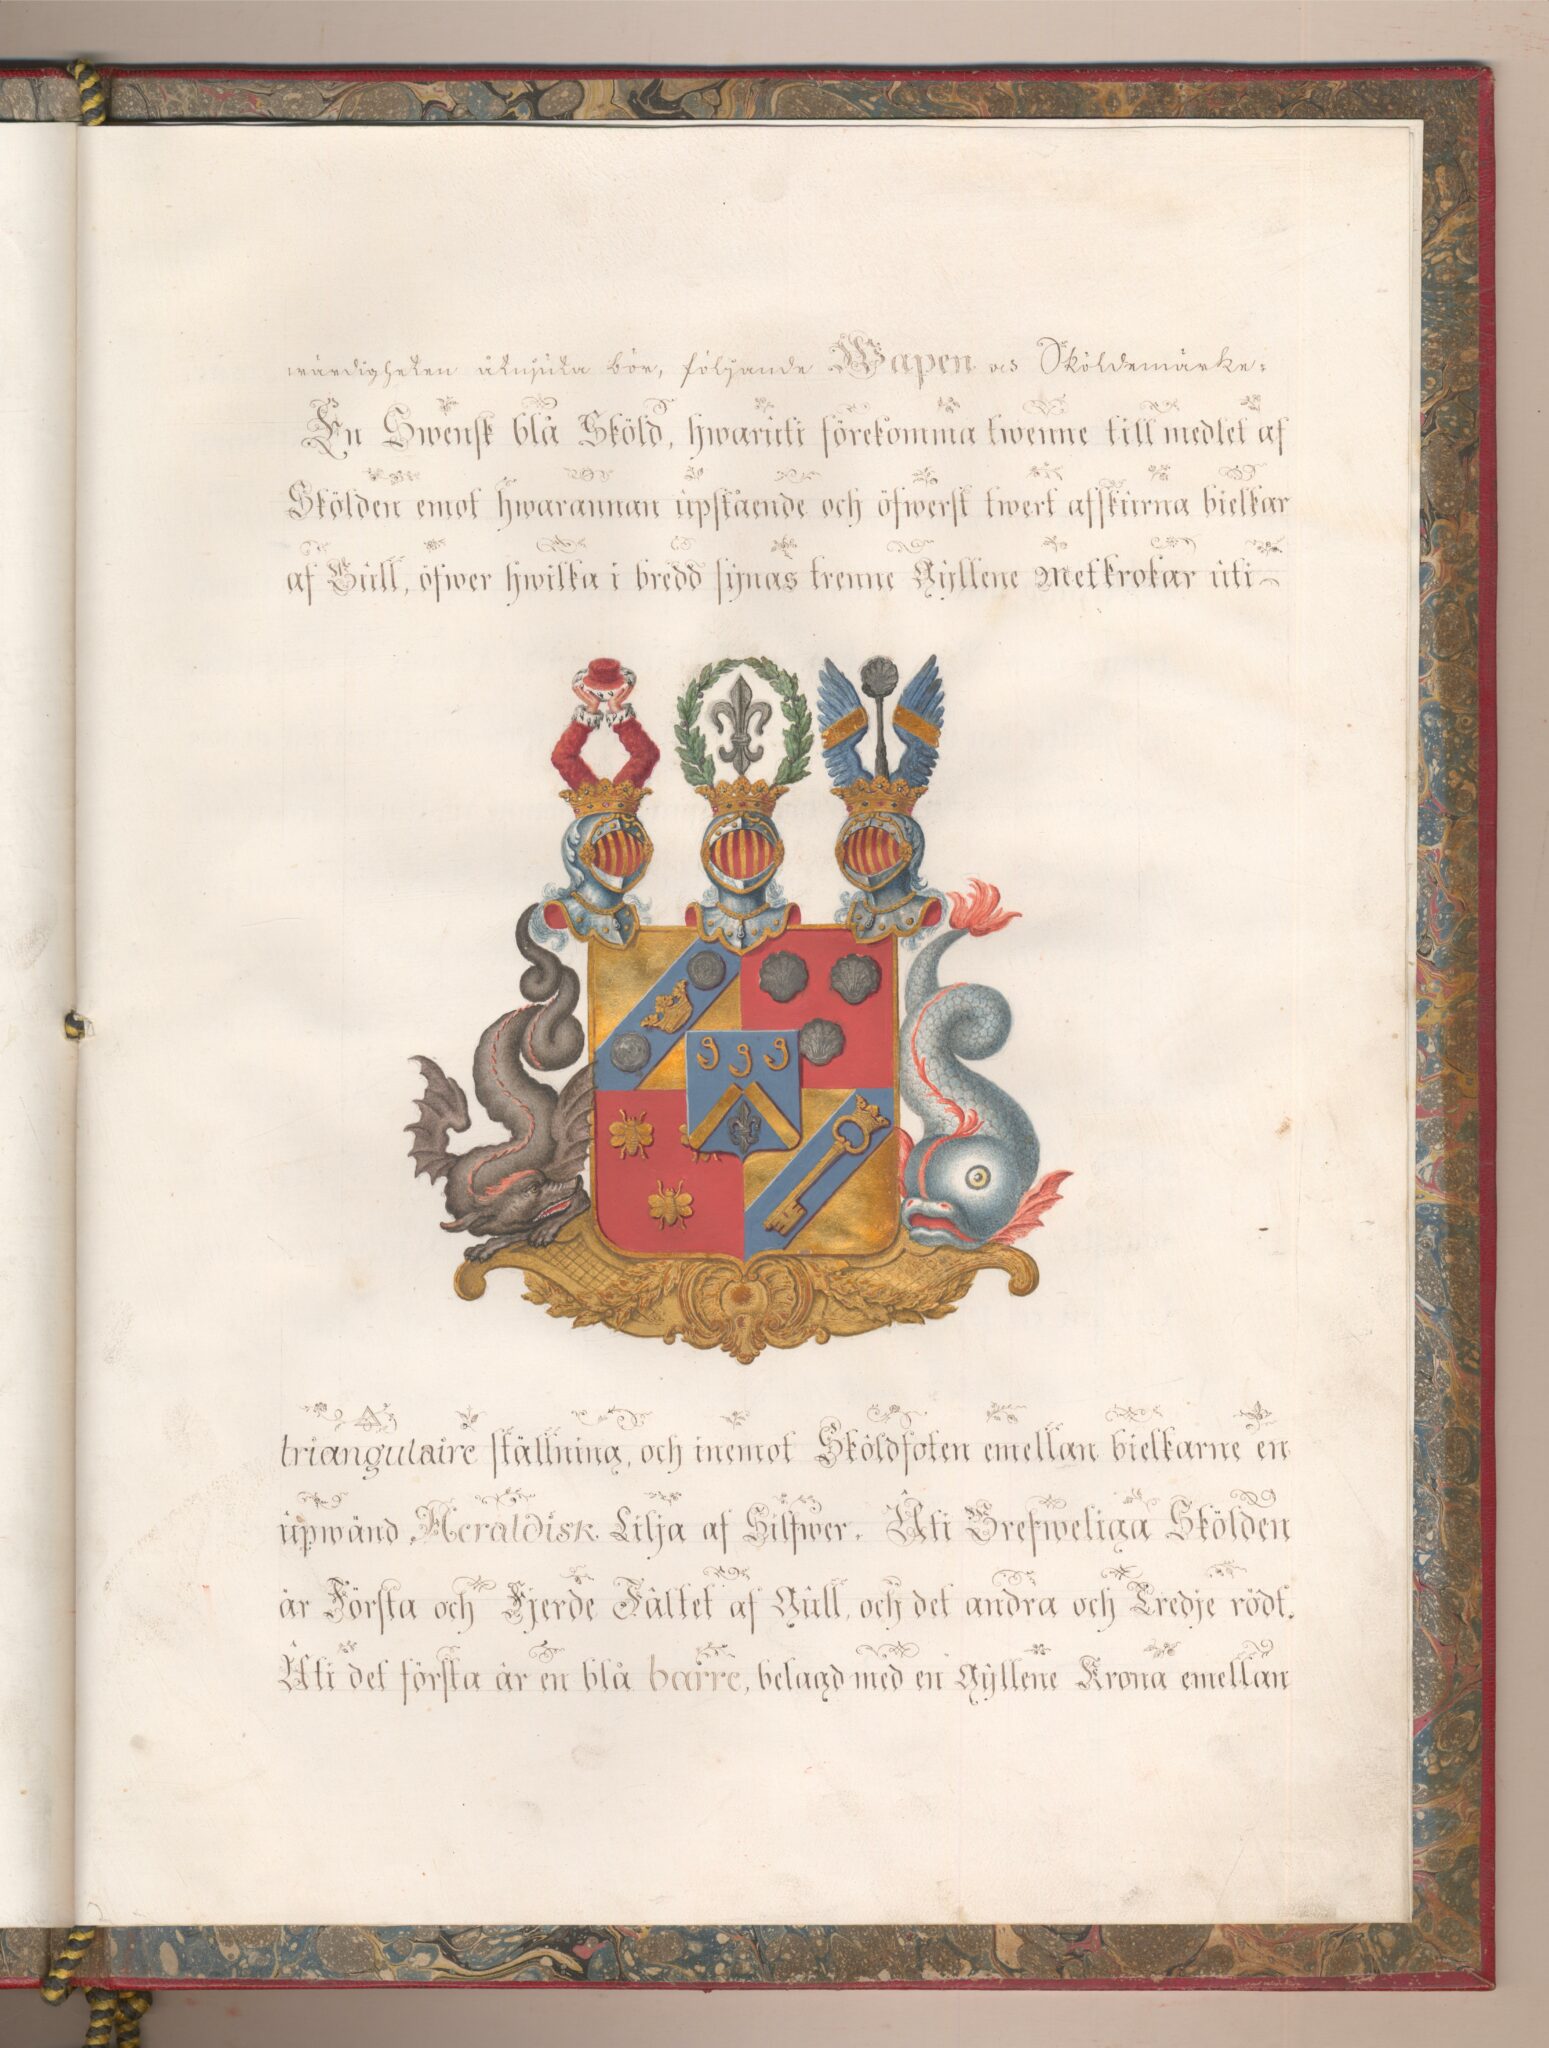 wärdigheten åtnjuta bör, följande Wapen och Sköldemärke:
En Swensk blå Sköld, hwaruti förekomma twenne till medlet af
Skölden emot hwarannan upstående och öfwerst twert afskurna bielkar
af Gull, öfwer hwilka i bredd synas trenne Gyllene Metkrokar uti
triangulaire ställning, och inemot Sköldfoten emellan bielkarne en
upwänd Heraldisk Lilja af Silfwer. Uti Grefweliga Skölden
är Första och Fjerde Fältet af Gull, och det andra och Tredje rödt.
Uti det första är en blå barre, belagd med en Gyllene Krona emellan